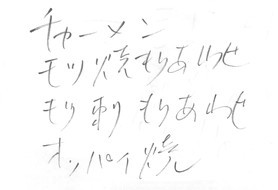 チャーメン
モツ焼もりあわせ
もり刺もりあわせ
オッパイ焼